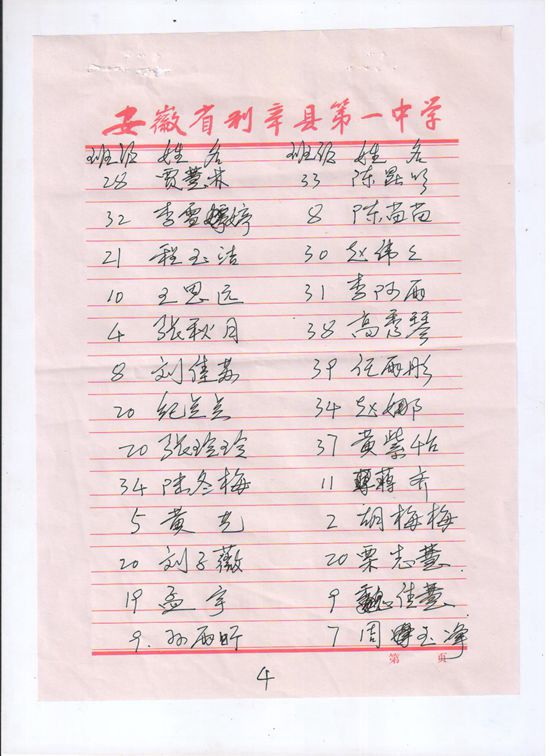 安徽省利辛县第一中学
班级 姓名 班级 姓名
28 贾慧林 33 陈
32 李雪婷 8 陈苗苗
21 程玉洁 30 赵伟
10 王思远 31 李阿雨
4 张秋月 38 高秀琴
8 刘佳 39 任雨彤
20 纪点点 34 赵娜
20 张玲玲 37 黄紫怡
34 陆冬梅 11 蒋齐
5 黄 2 胡梅梅
20 刘子薇 20 栗志慧
19 孟宇 9 魏佳慧
9. 孙雨昕 7 周玉净
第 页
4